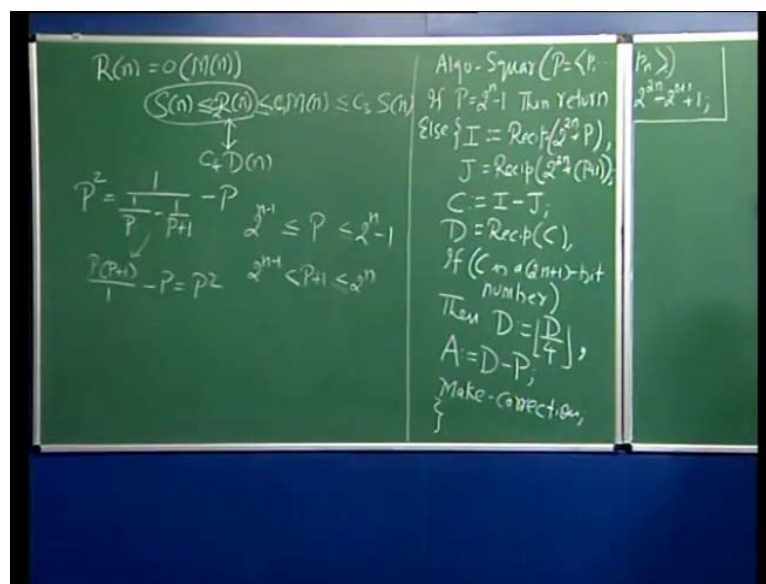 R(n) = O(M(n))
S(n) ≤ R(n) ≤ C₁M(n) ≤ C₃ S(n)
↕
C₄ D(n)
P² = 1 / (1/P - 1/(P+1)) - P
2ⁿ⁻¹ ≤ P < 2ⁿ-1
P(P+1)/1 - P = P²
2ⁿ⁻¹ < P+1 ≤ 2ⁿ
Algo-Squar(P=<P₁ ... Pₙ>)
If P=2ⁿ-1 Then return 2²ⁿ-2ⁿ⁺¹+1;
Else { I := Recip(2²ⁿ+P),
J = Recip(2²ⁿ+(P+1));
C := I - J;
D := Recip(C),
If (C is a (2n+1)-bit
number)
Then D := ⌊D/4⌋,
A := D-P;
Make-Correction;
}